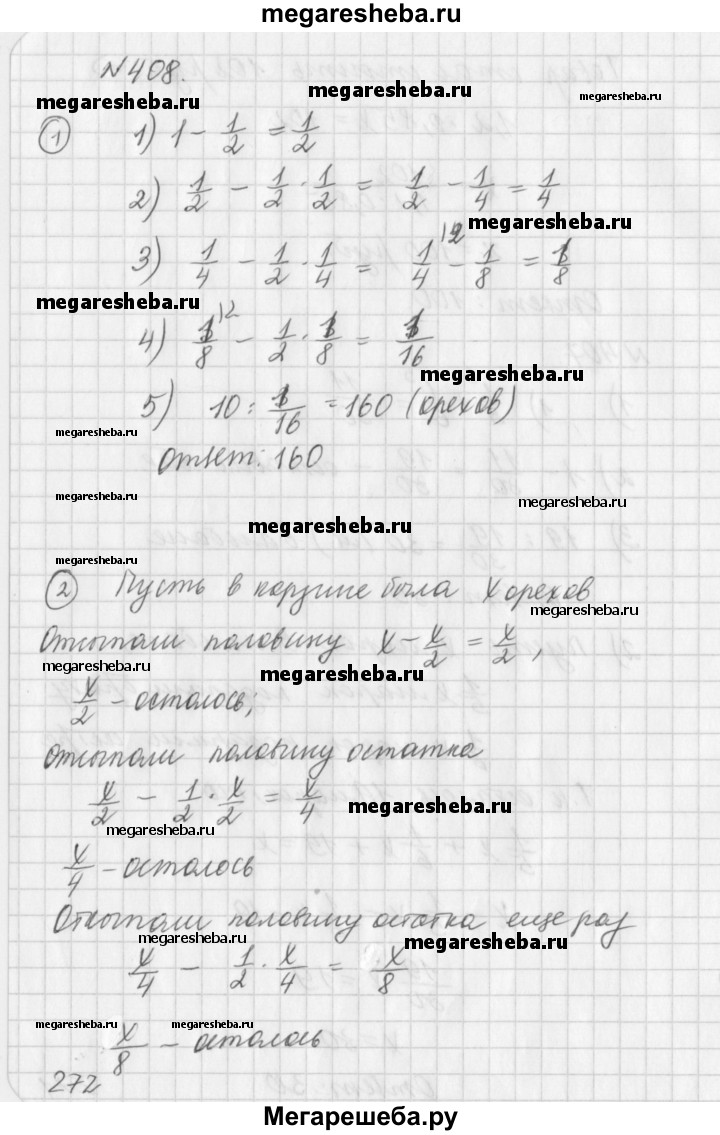 megaresheba.ru
№408.
megaresheba.ru
megaresheba.ru
① 1) 1 - 1/2 = 1/2
2) 1/2 - 1/2 · 1/2 = 1/2 - 1/4 = 1/4
megaresheba.ru
3) 1/4 - 1/2 · 1/4 = 1/4 |2 - 1/8 = 1/8
megaresheba.ru
4) 1/8 |2 - 1/2 · 1/8 = 1/16
megaresheba.ru
5) 10 : 1/16 = 160 (орехов)
megaresheba.ru
Ответ: 160
megaresheba.ru
megaresheba.ru
megaresheba.ru
megaresheba.ru
② Пусть в корзине была x орехов
megaresheba.ru
Отсыпали половину x - x/2 = x/2,
megaresheba.ru
megaresheba.ru
x/2 - осталось;
отсыпали половину остатка
x/2 - 1/2 · x/2 = x/4
megaresheba.ru
megaresheba.ru
x/4 - осталось
Отсыпали половину остатка еще раз
megaresheba.ru
megaresheba.ru
x/4 - 1/2 · x/4 = x/8
megaresheba.ru
megaresheba.ru
megaresheba.ru
x/8 - осталось
272
Мегарешеба.ру